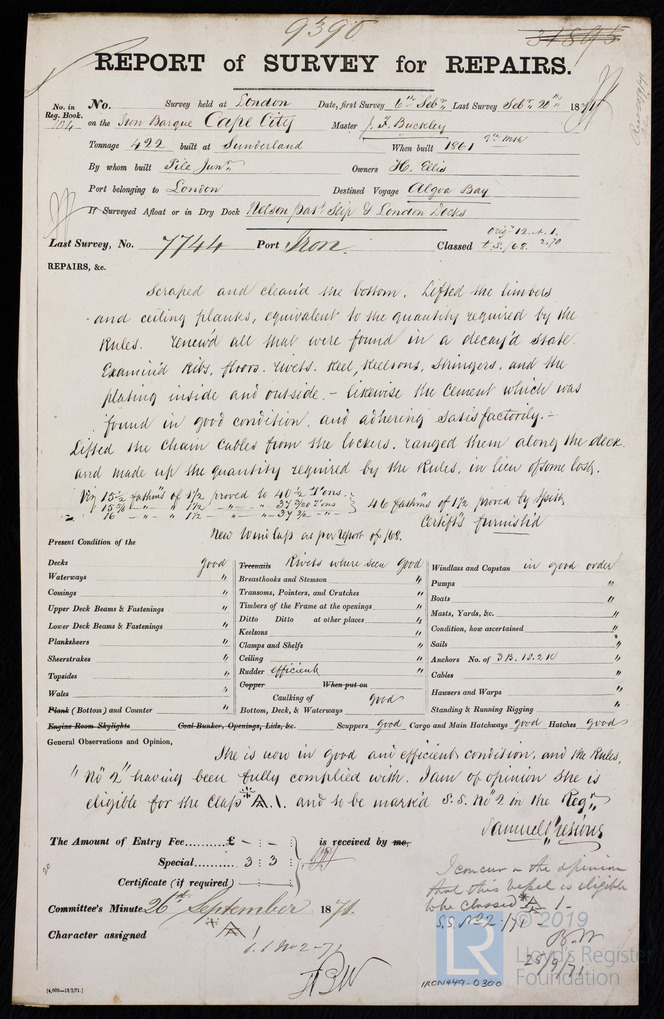 9390
31895
REPORT of SURVEY for REPAIRS.
No. in Reg. Book.
No. Survey held at London Date, first Survey 6th Sebr, Last Survey Sebr 20th 1871
on the Iron Barque Cape City Master J. F. Buckley
Tonnage 422 built at Sunderland When built 1861 9th Mth
By whom built Pile Junr, Owners H. Ellis
Port belonging to London Destined Voyage Algoa Bay
If Surveyed Afloat or in Dry Dock Nelson patt Slip & London Docks
Last Survey, No. 7744 Port Iron Classed
REPAIRS, &c.
Scraped and clean'd the bottom. Lifted the limbers
and ceiling planks, equivalent to the quantity required by the
Rules. renew'd all that were found in a decay'd state.
Examin'd Ribs, floors. rivets. Keel, Keelsons, Stringers, and the
plating inside and outside. - likewise the cement which was
found in good condition, and adhering satisfactorily. -
Lifted the chain cables from the lockers. ranged them along the deck.
and made up the quantity required by the Rules, in lieu of some lost.
Viz 15½ fathms of 1½ proved to 40½ Tons.
46 fathms of 1½ proved by
Certifts furnish'd
New Windlass as per report of /68.
Present Condition of the
Decks good
Waterways "
Comings "
Upper Deck Beams & Fastenings "
Lower Deck Beams & Fastenings "
Planksheers "
Sheerstrakes "
Topsides "
Wales "
Plank (Bottom) and Counter "
Treenails Rivets where seen good
Breasthooks and Stemson "
Transoms, Pointers, and Crutches "
Timbers of the Frame at the openings "
Ditto Ditto at other places "
Keelsons "
Clamps and Shelfs "
Ceiling "
Rudder efficient "
Copper When put on
Caulking of
Bottom, Deck, & Waterways good
Windlass and Capstan in good order
Pumps "
Boats "
Masts, Yards, &c. "
Condition, how ascertained "
Sails "
Anchors No. of 3B. 1S. 2K "
Cables "
Hawsers and Warps "
Standing & Running Rigging "
Engine Room Skylights Coal Bunker, Openings, Lids, &c. Scuppers good Cargo and Main Hatchways good Hatches good
General Observations and Opinion,
She is now in good and efficient condition, and the Rules,
"No 2" having been fully complied with. I am of opinion she is
eligible for the Class A.1. and to be mark'd S.S. No 2 in the Regr,
The Amount of Entry Fee......... £ - : - : is received by me,
Special......... 3 : 3 :
Certificate (if required)
I concur in the opinion
that this vessel is eligible
to be classed A 1 -
S.S. No 2-/71
B.W
25/9/71
Committee's Minute 26th September 1871.
Character assigned A 1
[4,000—18/3/71.]
IRON449-0300
© 2019
LR
Lloyd's Register
Foundation